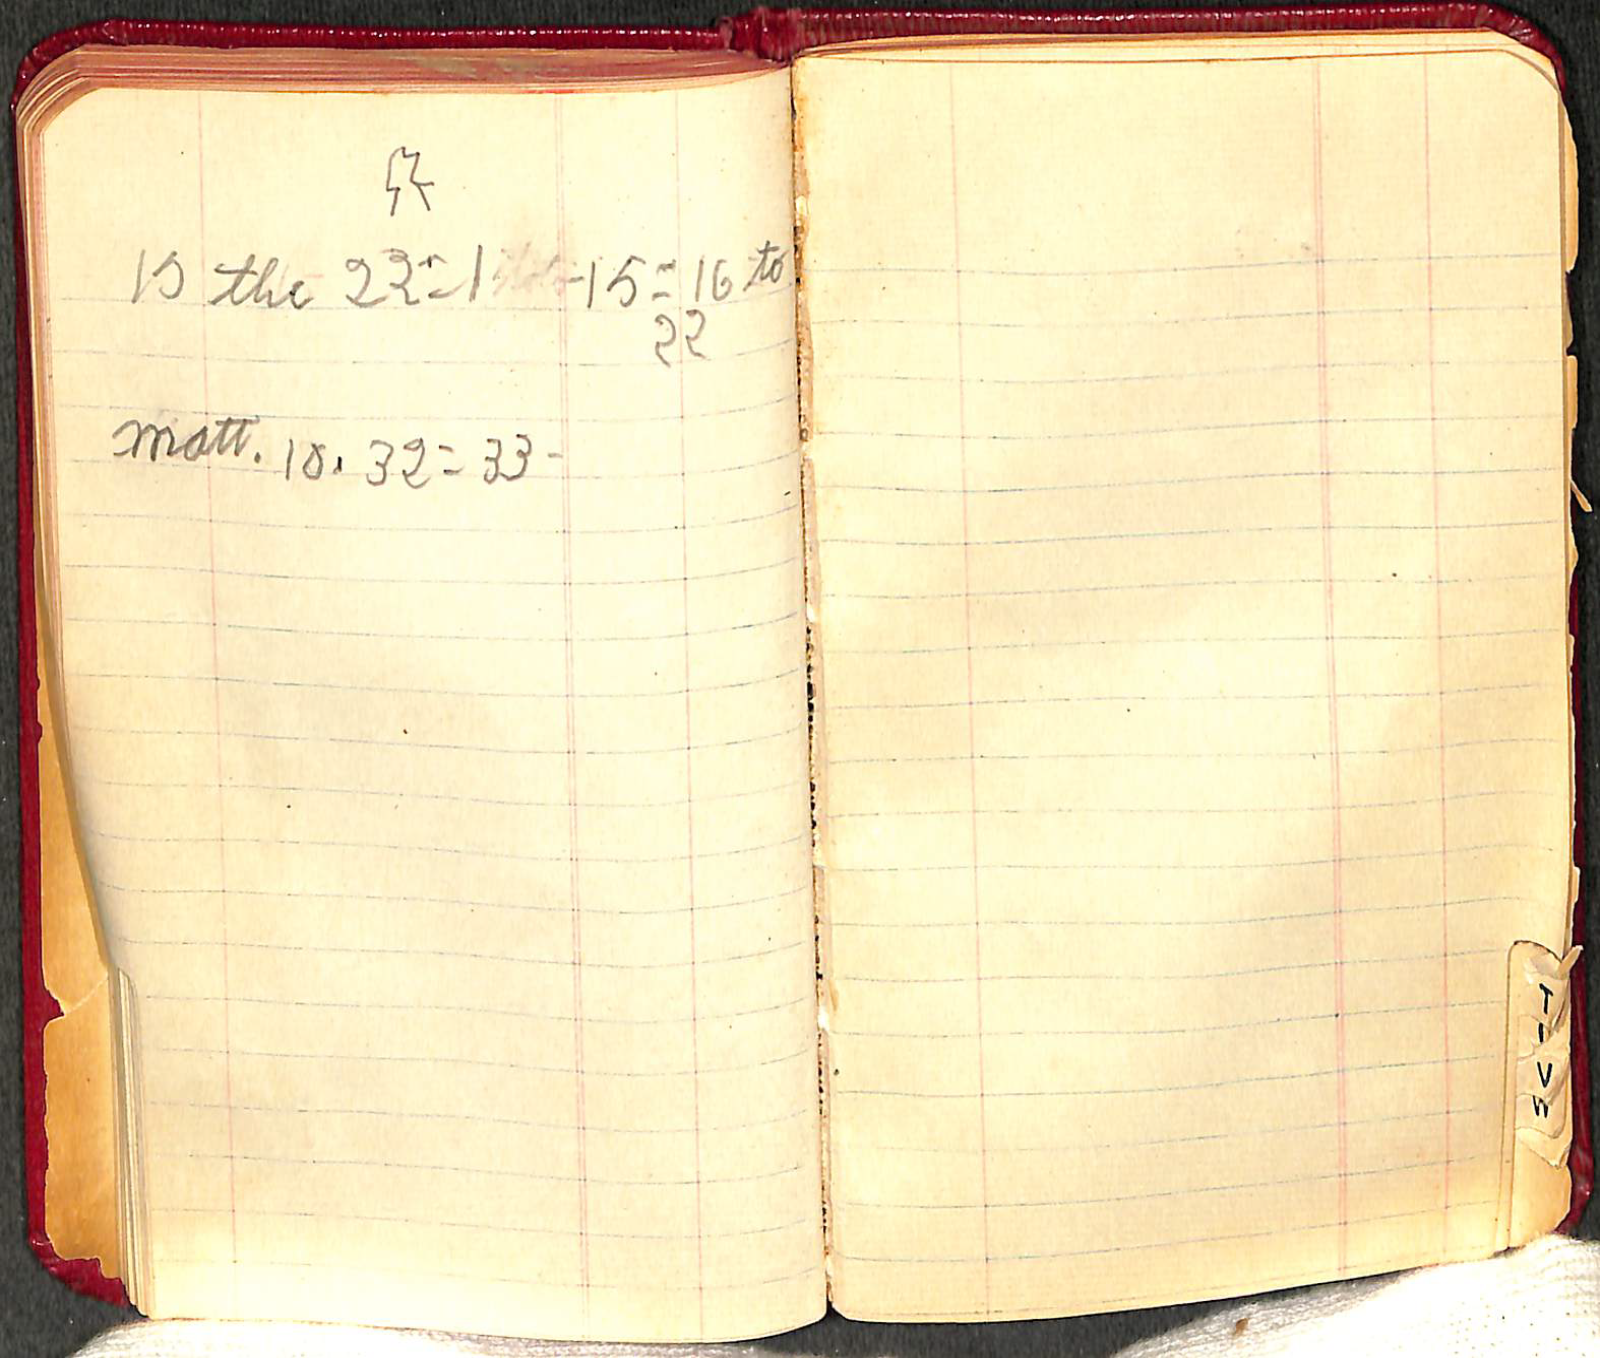 15 the 22=1 -15=16 to
22
Matt. 10. 32=33-